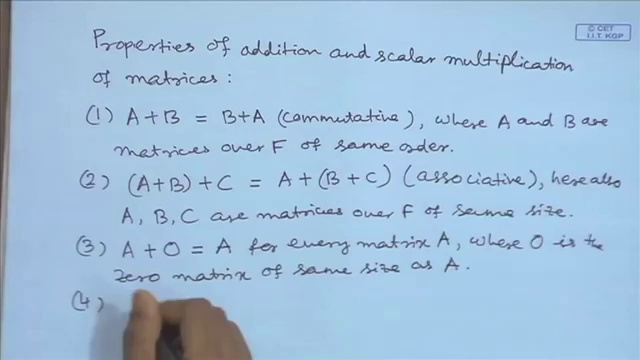 © CET
I.I.T. KGP
Properties of addition and scalar multiplication
of matrices :
(1) A+B = B+A (commutative), where A and B are
matrices over F of same order.
(2) (A+B)+C = A+(B+C) (associative), here also
A, B, C are matrices over F of same size.
(3) A+O = A for every matrix A, where O is the
zero matrix of same size as A.
(4)